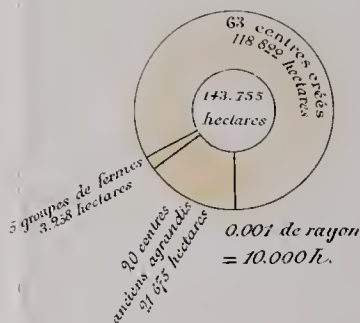 63 centres créés
118 822 hectares
143.755
hectares
5 groupes de fermes
3.258 hectares
20 centres
anciens agrandis
21 675 hectares
0.001 de rayon
= 10.000 h.